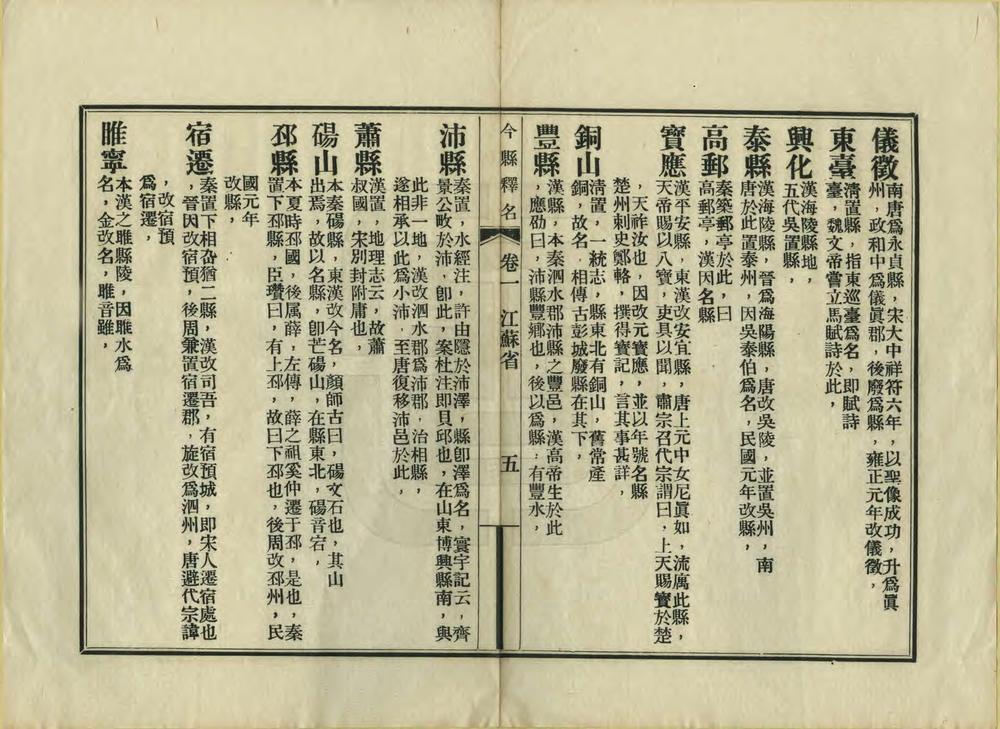 儀徵
南唐爲永貞縣，宋大中祥符六年，以聖像成功，升爲眞
州，政和中爲儀眞郡，後廢爲縣，雍正元年改儀徵，
東臺
清置縣，指東巡臺爲名，即賦詩
臺，魏文帝嘗立馬賦詩於此，
興化
漢海陵縣地，
五代吳置縣，
泰縣
漢海陵縣，晉爲海陽縣，唐改吳陵，並置吳州，南
唐於此置泰州，因吳泰伯爲名，民國元年改縣，
高郵
秦築郵亭於此，曰
高郵亭，漢因名縣
寶應
漢平安縣，東漢改安宜縣，唐上元中女尼眞如，流寓此縣，
天帝賜以八寶，吏具以聞，肅宗召代宗謂曰，上天賜寶於楚
，天祚汝也，因改元寶應，並以年號名縣
楚州刺史鄭輅，撰得寶記，言其事甚詳，
銅山
清置，一統志，縣東北有銅山，舊常產
銅，故名，相傳古彭城廢縣在其下，
豐縣
漢縣，本秦泗水郡沛縣之豐邑，漢高帝生於此
，應劭曰，沛縣豐鄉也，後以爲縣，有豐水，
今縣釋名 卷一 江蘇省 五
沛縣
秦置，水經注，許由隱於沛澤，縣卽澤爲名，寰宇記云，齊
景公畋於沛，卽此，案杜注即貝邱也，在山東博興縣南，與
此非一地，漢改泗水郡爲沛郡，治相縣，
遂相承以此爲小沛，至唐復移沛邑於此，
蕭縣
漢置，地理志云，故蕭
叔國，宋別封附庸也，
碭山
本秦碭縣，東漢改今名，顏師古曰，碭文石也，其山
出焉，故以名縣，卽芒碭山，在縣東北，碭音宕，
邳縣
本夏時邳國，後属薛，左傳，薛之祖奚仲遷于邳，是也，秦
置下邳縣，臣瓚曰，有上邳，故曰下邳也，後周改邳州，民
國元年
改縣，
宿遷
秦置下相厹猶二縣，漢改司吾，有宿預城，即宋人遷宿處也
，晉因改宿預，後周兼置宿遷郡，旋改爲泗州，唐避代宗諱
，改宿預
爲宿遷，
睢寧
本漢之睢縣陵，因睢水爲
名，金改名，睢音雖，